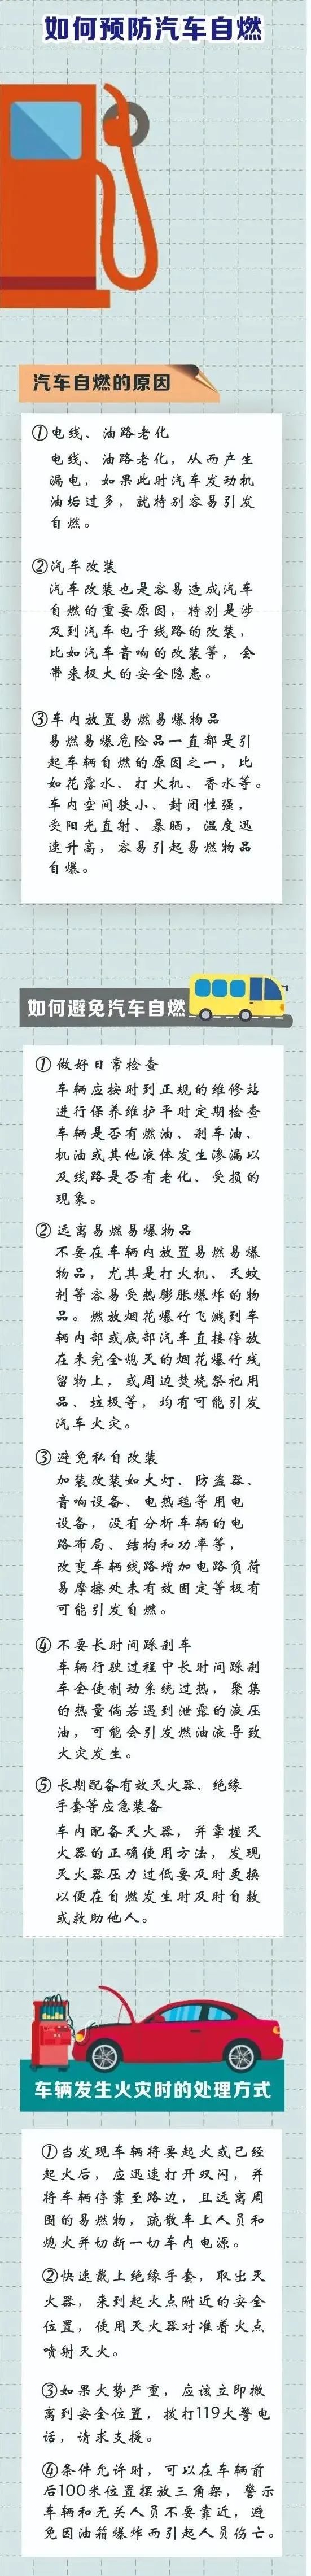 如何预防汽车自燃
汽车自燃的原因
①电线、油路老化
电线、油路老化，从而产生
漏电，如果此时汽车发动机
油垢过多，就特别容易引发
自燃。
②汽车改装
汽车改装也是容易造成汽车
自燃的重要原因，特别是涉
及到汽车电子线路的改装，
比如汽车音响的改装等，会
带来极大的安全隐患。
③车内放置易燃易爆物品
易燃易爆危险品一直都是引
起车辆自燃的原因之一，比
如花露水、打火机、香水等。
车内空间狭小、封闭性强，
受阳光直射、暴晒，温度迅
速升高，容易引起易燃物品
自爆。
如何避免汽车自燃
① 做好日常检查
车辆应按时到正规的维修站
进行保养维护平时定期检查
车辆是否有燃油、刹车油、
机油或其他液体发生渗漏以
及线路是否有老化、受损的
现象。
② 远离易燃易爆物品
不要在车辆内放置易燃易爆
物品，尤其是打火机、灭蚊
剂等容易受热膨胀爆炸的物
品。燃放烟花爆竹飞溅到车
辆内部或底部汽车直接停放
在未完全熄灭的烟花爆竹残
留物上，或周边焚烧祭祀用
品、垃圾等，均有可能引发
汽车火灾。
③ 避免私自改装
加装改装如大灯、防盗器、
音响设备、电热毯等用电
设备，没有分析车辆的电
路布局、结构和功率等，
改变车辆线路增加电路负荷
易摩擦处未有效固定等极有
可能引发自燃。
④ 不要长时间踩刹车
车辆行驶过程中长时间踩刹
车会使制动系统过热，聚集
的热量倘若遇到泄露的液压
油，可能会引发燃油液导致
火灾发生。
⑤ 长期配备有效灭火器、绝缘
手套等应急装备
车内配备灭火器，并掌握灭
火器的正确使用方法，发现
灭火器压力过低要及时更换
以便在自燃发生时及时自救
或救助他人。
车辆发生火灾时的处理方式
①当发现车辆将要起火或已经
起火后，应迅速打开双闪，并
将车辆停靠至路边，且远离周
围的易燃物，疏散车上人员和
熄火并切断一切车内电源。
②快速戴上绝缘手套，取出灭
火器，来到起火点附近的安全
位置，使用灭火器对准着火点
喷射灭火。
③如果火势严重，应该立即撤
离到安全位置，拨打119火警电
话，请求支援。
④条件允许时，可以在车辆前
后100米位置摆放三角架，警示
车辆和无关人员不要靠近，避
免因油箱爆炸而引起人员伤亡。